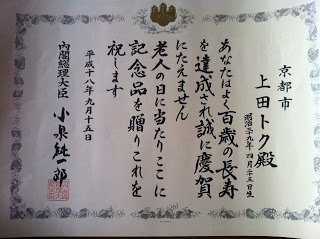 京都市
上田トク殿
明治三九年四月二五日生
あなたはよく百歳の長寿
を達成され誠に慶賀
にたえません
老人の日に当たりここに
記念品を贈りこれを
祝します
平成十八年九月十五日
内閣総理大臣 小泉純一郎